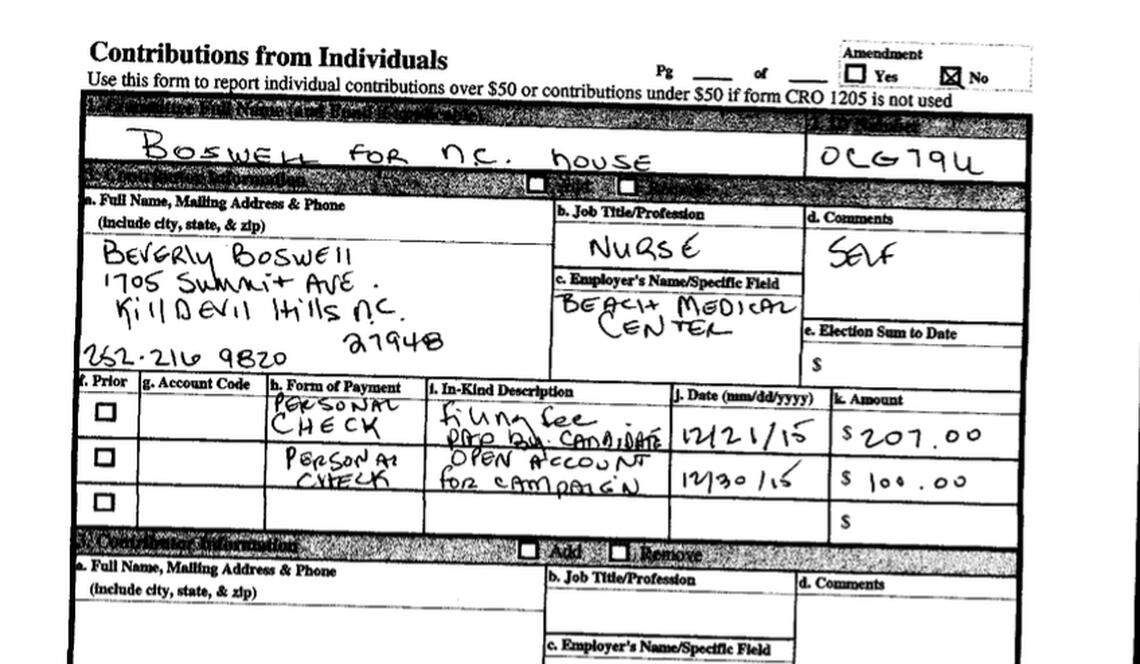 Contributions from Individuals
Amendment
Pg ___ of ___ Yes No
Use this form to report individual contributions over $50 or contributions under $50 if form CRO 1205 is not used
BOSWELL FOR N.C. HOUSE
a. Full Name, Mailing Address & Phone
(include city, state, & zip)
BEVERLY BOSWEll
1705 Summit AVE.
Kill DEVIL Hills N.C.
27948
252-216 9820
b. Job Title/Profession
NURSE
c. Employer's Name/Specific Field
BEACH MEDICAL
CENTER
d. Comments
SELF
e. Election Sum to Date
$
f. Prior g. Account Code h. Form of Payment i. In-Kind Description j. Date (mm/dd/yyyy) k. Amount
PERSONAL CHECK filing fee PAID By CANDIDATE 12/21/15 $ 207.00
PERSONAL CHECK OPEN ACCOUNT for CAMPAIGN 12/30/15 $ 100.00
$
3. Contributor Information Add Remove
a. Full Name, Mailing Address & Phone
(include city, state, & zip)
b. Job Title/Profession
d. Comments
c. Employer's Name/Specific Field